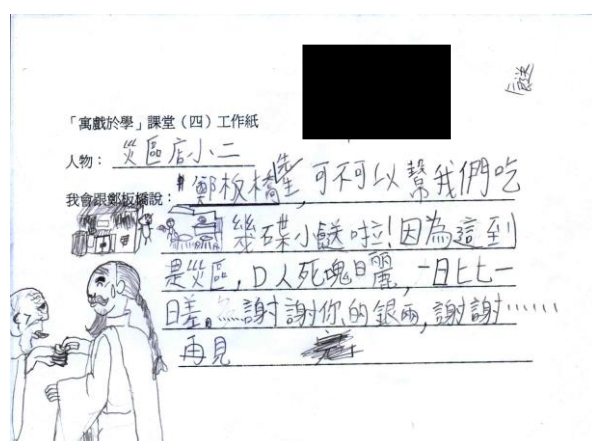 「寓戲於學」課堂（四）工作紙
人物：災區店小二
我會跟鄭板橋說：鄭板橋，可不可以幫我們吃
幾碟小餸啦！因為這到
是災區，D人死，一日比一
日差。謝謝你的銀両，謝謝……
再見